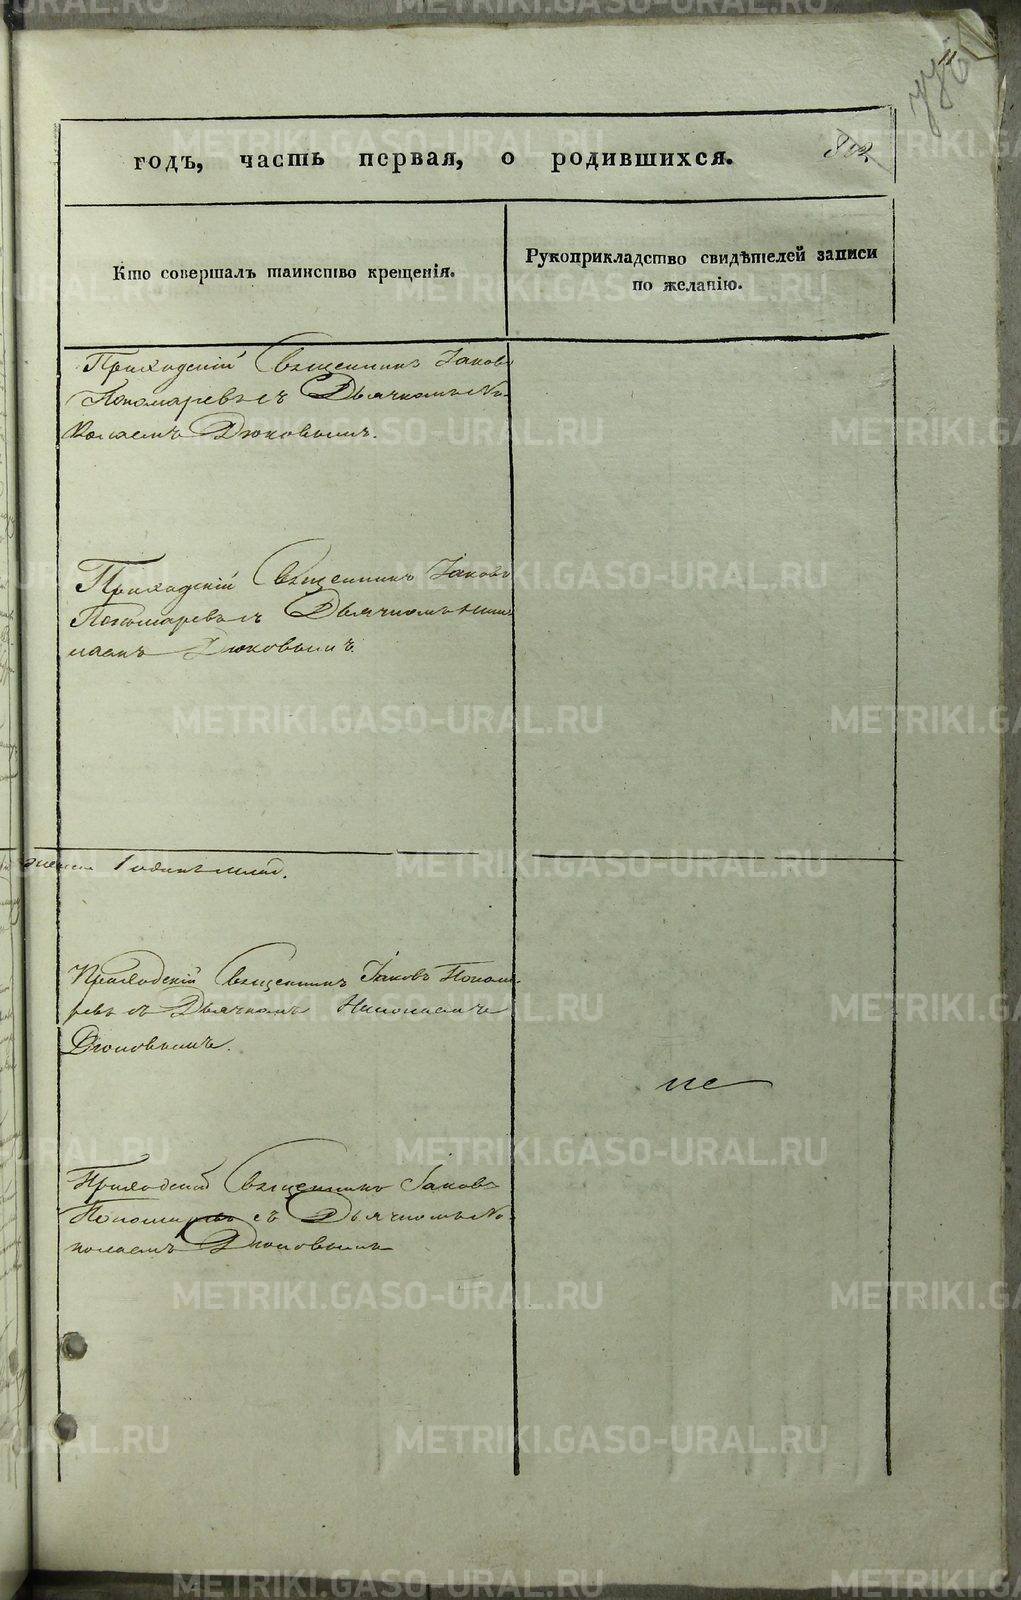 11
годъ, часть первая, о родившихся.
802.
Кто совершалъ таинство крещенія.
Рукоприкладство свидѣтелей записи
по желанію.
Приходскій Священникъ Іаковъ
Пономаревъ съ Дьячкомъ Ни-
колаемъ Дюковымъ.
Приходскій Священникъ Іаковъ
Пономаревъ съ Дьячкомъ Нико-
лаемъ Дюковымъ.
1 одинъ млад.
Приходскій Священникъ Іаковъ Понома-
ревъ съ Дьячкомъ Николаемъ
Дюковымъ.
Приходскій Священникъ Іаковъ
Пономаревъ съ Дьячкомъ Ни-
колаемъ Дюковымъ
METRIKI.GASO-URAL.RU